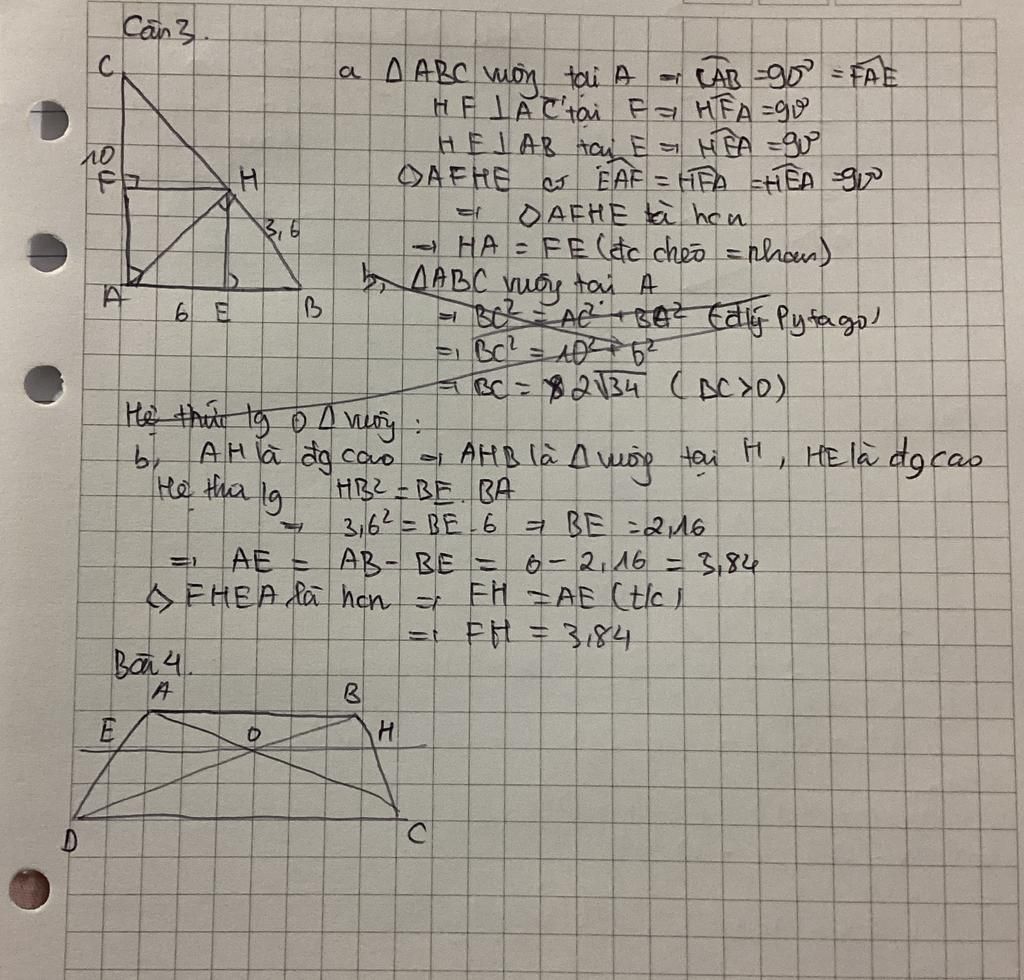 Câu 3.
C
10
F
H
3,6
A
6
E
B
a △ABC vuông tại A ⇒ CAB = 90° = FAE
HF ⊥ AC tại F ⇒ HFA = 90°
HE ⊥ AB tại E ⇒ HEA = 90°
◇AFHE có EAF = HFA = HEA = 90°
⇒ ◇AFHE là hcn
⇒ HA = FE (đc chéo = nhau)
b, △ABC vuông tại A
⇒ BC² = AC² + BA² (đlý Pytago)
⇒ BC² = 10² + 6²
⇒ BC = 2√34 (BC>0)
Hệ thức lg △ vuông :
b, AH là đg cao ⇒ AHB là △ vuông tại H, HE là đg cao
Hệ thức lg HB² = BE . BA
⇒ 3,6² = BE . 6 ⇒ BE = 2,16
⇒ AE = AB - BE = 6 - 2,16 = 3,84
◇ FHEA là hcn ⇒ FH = AE (t/c)
⇒ FH = 3,84
Bài 4.
A
B
E
O
H
D
C